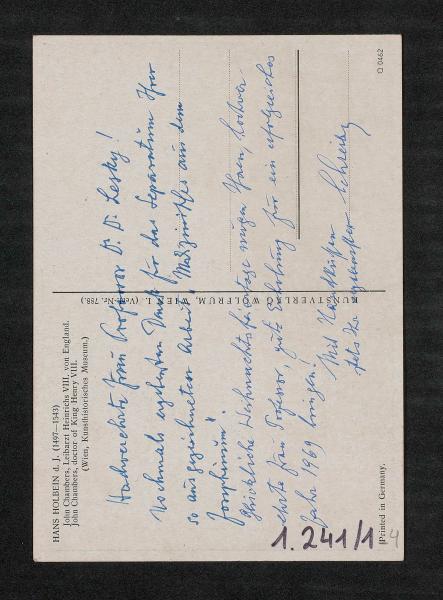 HANS HOLBEIN d. J. (1497—1543)
John Chambers, Leibarzt Heinrichs VIII. von England.
John Chambers, doctor of King Henry VIII.
(Wien, Kunsthistorisches Museum.)
Hochverehrte Frau Professor D. D. Lesky!
Nochmals ergebensten Dank für das Separatum Ihrer
so ausgezeichneten Arbeit „Medizinisches aus dem
Josephinum".
Glückliche Weihnachtsfeiertage mögen Ihnen, hochver-
ehrte Frau Professor, gute Erholung für ein erfolgreiches
Jahr 1969 bringen!
Mit Handküssen
stets Ihr
KUNSTVERLAG WOLFRUM, WIEN I. (Verl.-Nr. 788.)
Printed in Germany.
O 0462
1.241/1
4